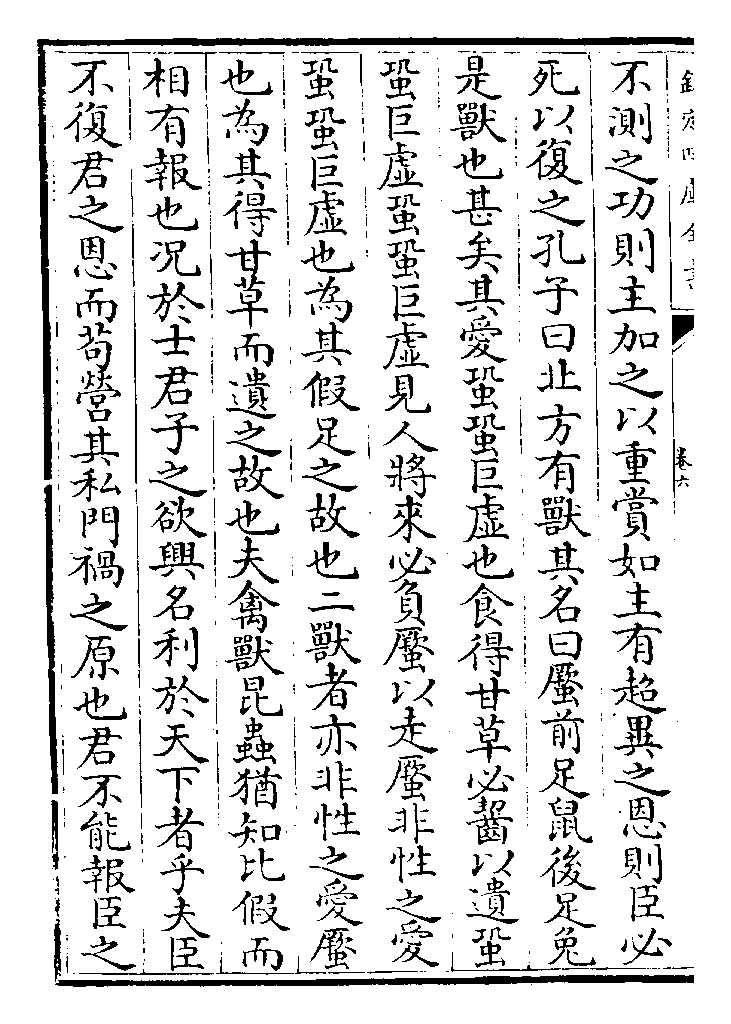 欽定四庫全書
卷六
不測之功則主加之以重賞如主有超異之恩則臣必
死以復之孔子曰北方有獸其名曰蟨前足鼠後足兔
是獸也甚矣其愛蛩蛩巨虛也食得甘草必齧以遺蛩
蛩巨虛蛩蛩巨虛見人將來必負蟨以走蟨非性之愛
蛩蛩巨虛也為其假足之故也二獸者亦非性之愛蟨
也為其得甘草而遺之故也夫禽獸昆蟲猶知比假而
相有報也况於士君子之欲興名利於天下者乎夫臣
不復君之恩而苟營其私門禍之原也君不能報臣之